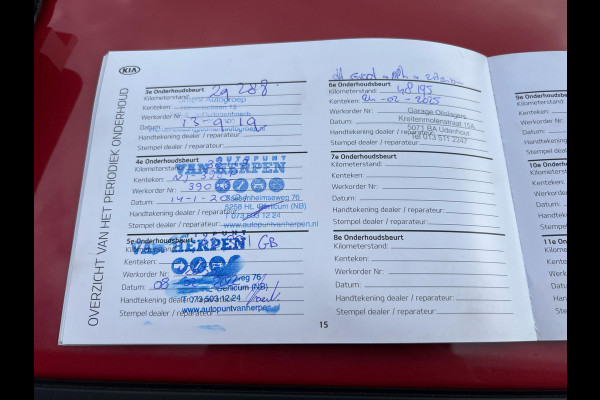 KIA
OVERZICHT VAN HET PERIODIEK ONDERHOUD
3e Onderhoudsbeurt
Kilometerstand: 29288
Kenteken:
Werkorder Nr:
Datum: 13-9-19
Handtekening dealer / reparateur:
Stempel dealer / reparateur:
4e Onderhoudsbeurt
AUTOPUNT
VAN HERPEN
Kilometerstand:
Kenteken:
Werkorder Nr: 390
Datum: 14-1-20
5258 HL Berlicum (NB)
Handtekening dealer / reparateur:
T 073 503 12 24
Stempel dealer / reparateur:
www.autopuntvanherpen.nl
5e Onderhoudsbeurt
AUTOPUNT
VAN HERPEN GB
Kilometerstand:
Kenteken:
Werkorder Nr:
weg 76
Datum: 08
HL Berlicum (NB)
Handtekening dealer / reparateur:
T 073 503 12 24
Stempel dealer / reparateur:
www.autopuntvanherpen
6e Onderhoudsbeurt
Kilometerstand: 48195
Kenteken: 24-02-2025
Werkorder Nr:
Garage Olislagers
Datum:
Kreitenmolenstraat 15A
Handtekening dealer / reparateur:
5071 BA Udenhout
Stempel dealer / reparateur:
Tel 013 511 2247
7e Onderhoudsbeurt
Kilometerstand:
Kenteken:
Werkorder Nr:
Datum:
Handtekening dealer / reparateur:
Stempel dealer / reparateur:
8e Onderhoudsbeurt
Kilometerstand:
Kenteken:
Werkorder Nr:
Datum:
Handtekening dealer / reparateur:
Stempel dealer / reparateur:
15
9e Onderh
Kilometers
Kenteken:
Werkorder
Datum:
Handteken
Stempel de
10e Onder
Kilometer
Kenteken:
Werkorde
Datum:
Handteke
Stempel
11e Ond
Kilomet
Kentek
Werko
Datum
Handt
Stem